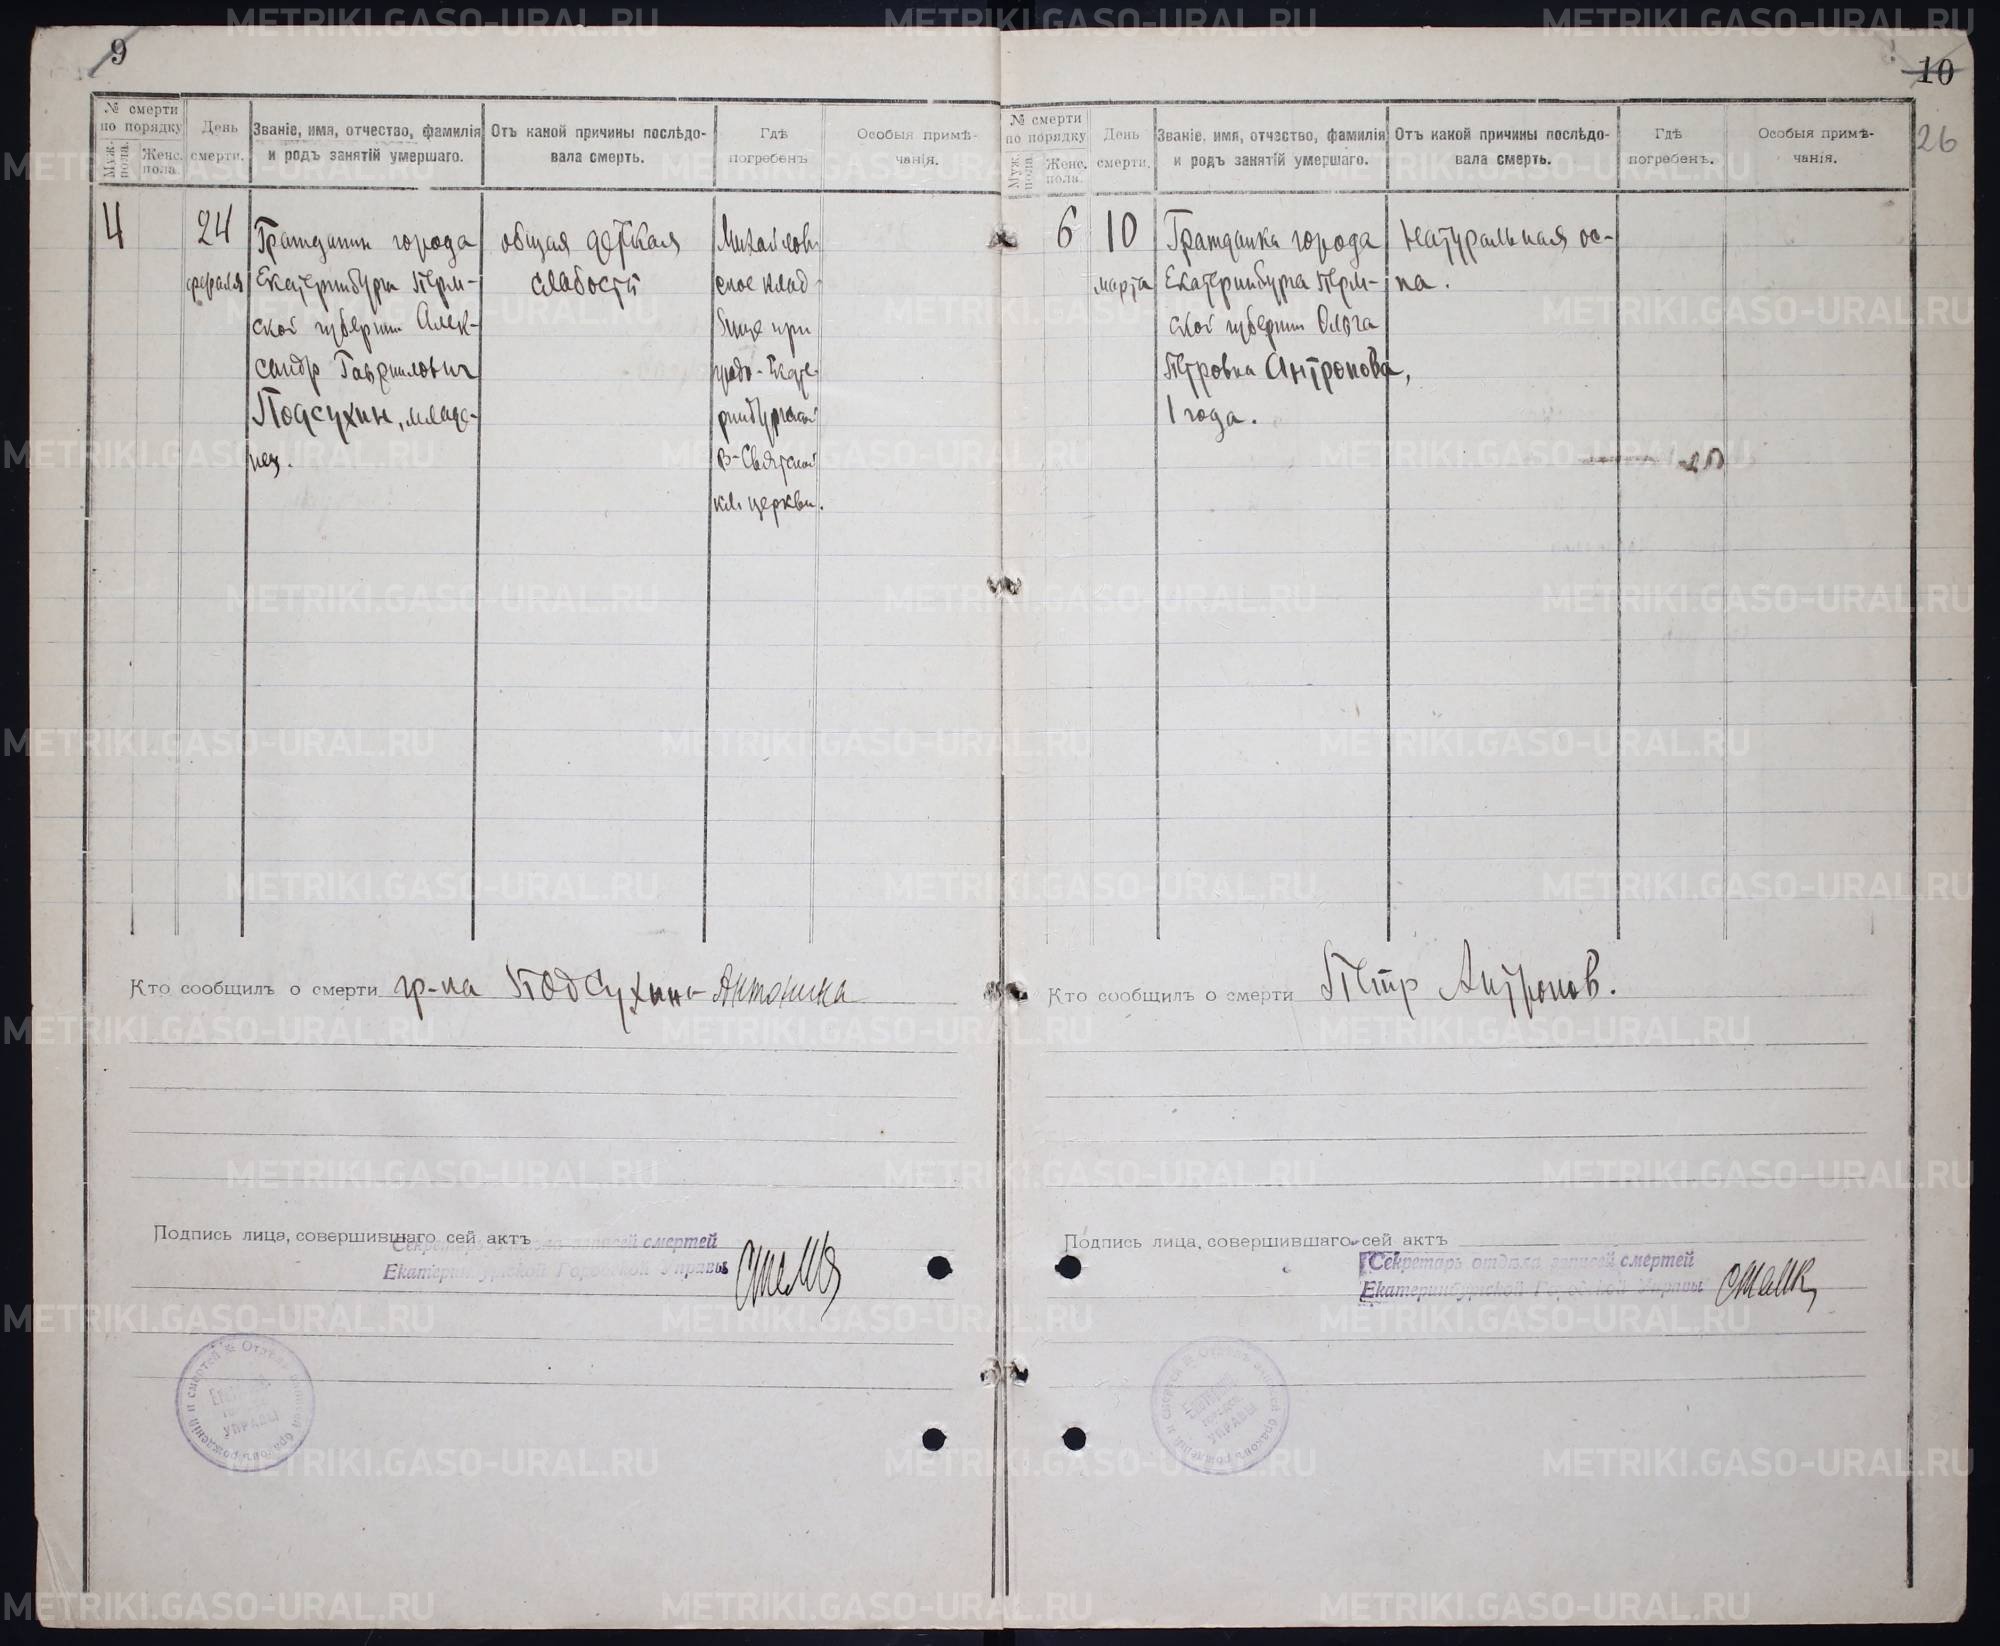 9
№ смерти
по порядку
Муж-
пола.
Женс.
пола.
День
смерти.
Званіе, имя, отчество, фамилія
и родъ занятій умершаго.
Отъ какой причины послѣдо-
вала смерть.
Гдѣ
погребенъ
Особыя примѣ-
чанія.
4
24
февраля
Гражданин города
Екатеринбурга Перм-
ской губернии Алек-
сандр Гавриилович
Подсухин, младе-
нец.
общая детская
слабость
Михайлов
ское клад
бище при
градо-Екате-
ринбургской
В-Святской
кл. церкви.
Кто сообщилъ о смерти гр-ка Подсухина Антонина
Подпись лица, совершившаго сей актъ
Секретарь отдѣла записей смертей
Екатеринбургской Городской Управы
10
26
№ смерти
по порядку
Муж.
пола.
Женс.
пола.
День
смерти.
Званіе, имя, отчество, фамилія
и родъ занятій умершаго.
Отъ какой причины послѣдо-
вала смерть.
Гдѣ
погребенъ.
Особыя примѣ-
чанія.
6
10
марта
Гражданка города
Екатеринбурга Перм-
ской губернии Ольга
Петровна Антропова,
1 года.
Натуральная ос-
па.
Кто сообщилъ о смерти Петр Антропов.
Подпись лица, совершившаго сей актъ
Секретарь отдѣла записей смертей
Екатеринбургской Городской Управы
METRIKI.GASO-URAL.RU